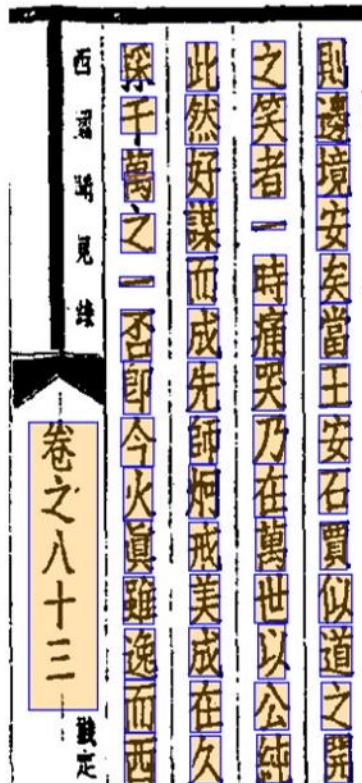 則邊境安矣當王安石賈似道之開
之笑者一時痛哭乃在萬世以公純
此然好謀而成先師炯戒美成在久
採千萬之一否卽今火眞雖逸而西
西園聞見錄
卷之八十三
戡定